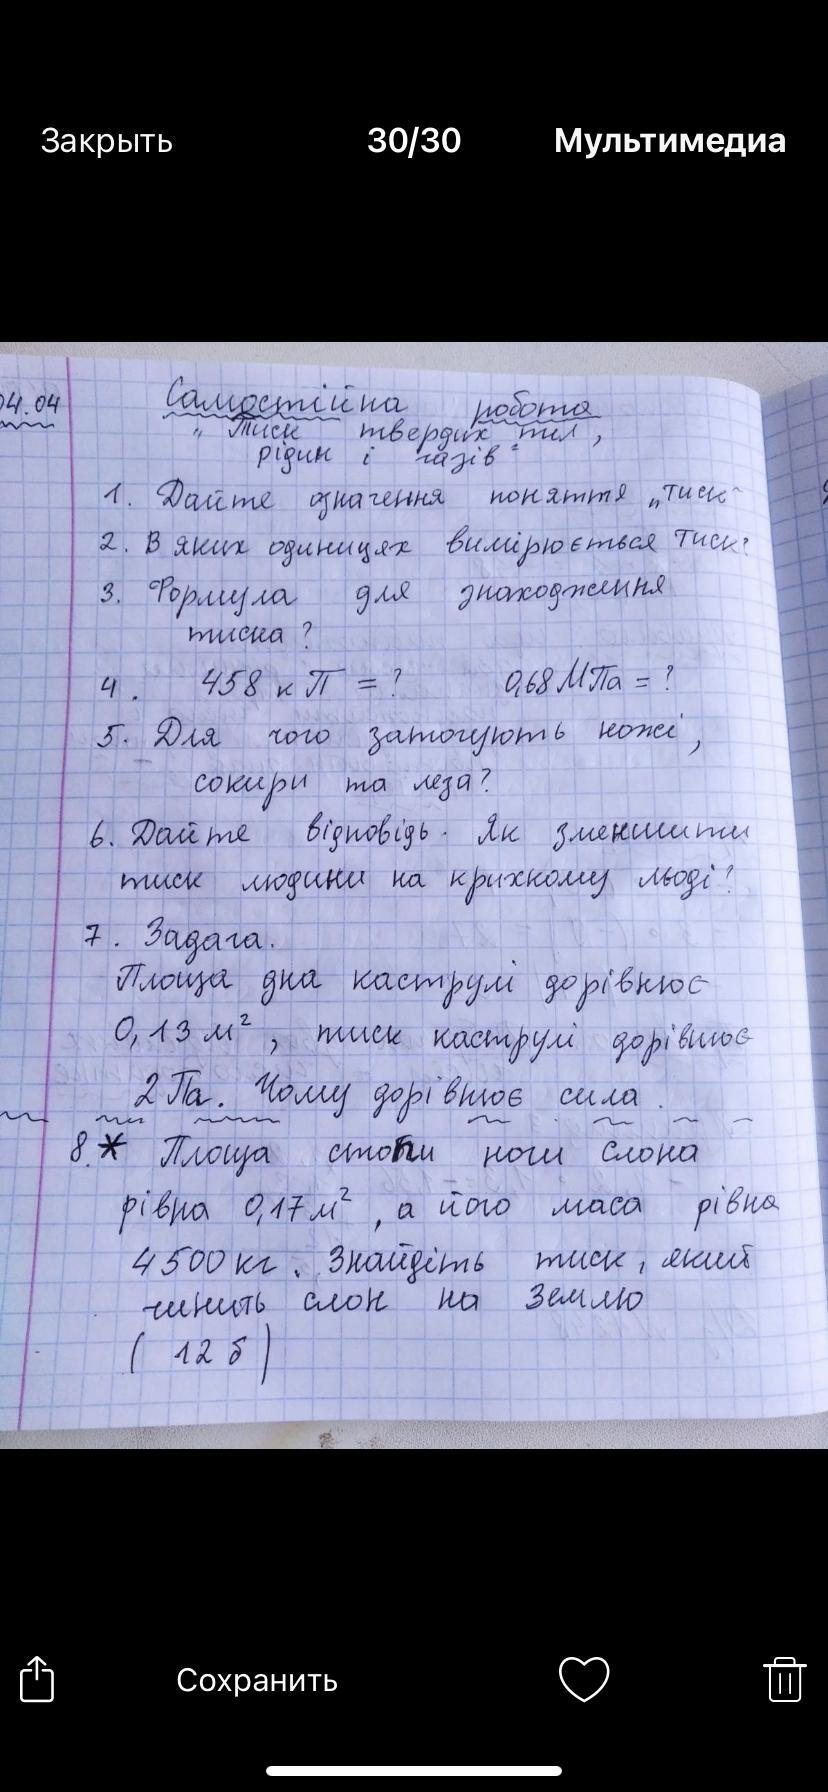 Закрыть 30/30 Мультимедиа
04.04 Самостійна робота
„Тиск твердих тил,
рідин і газів"
1. Дайте означення поняття „тиск"
2. В яких одиницях вимірюється тиск?
3. Формула для знаходження
тиска?
4. 458 к П = ? 0,68 МПа = ?
5. Для чого заточують ножі,
сокири та леза?
6. Дайте відповідь. Як зменшити
тиск людини на крихкому льоді?
7. Задача.
Площа дна каструлі дорівнює
0,13 м², тиск каструлі дорівнює
2 Па. Чому дорівнює сила.
8.* Площа стопи ноги слона
рівна 0,17 м², а його маса рівна
4500 кг. Знайдіть тиск, який
чинить слон на Землю
( 12 б )
Сохранить